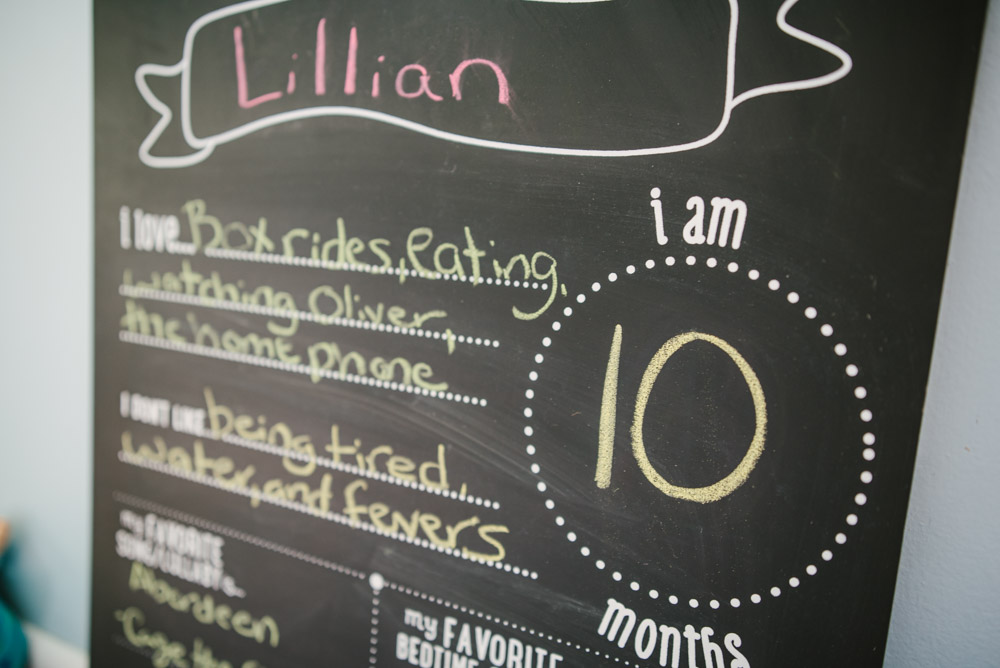 Lillian
i love... Box rides, eating,
watching Oliver,
the home phone
i am
10
months
I DON'T LIKE being tired,
water, and fevers
my FAVORITE
Aberdeen
my FAVORITE
BEDTIME